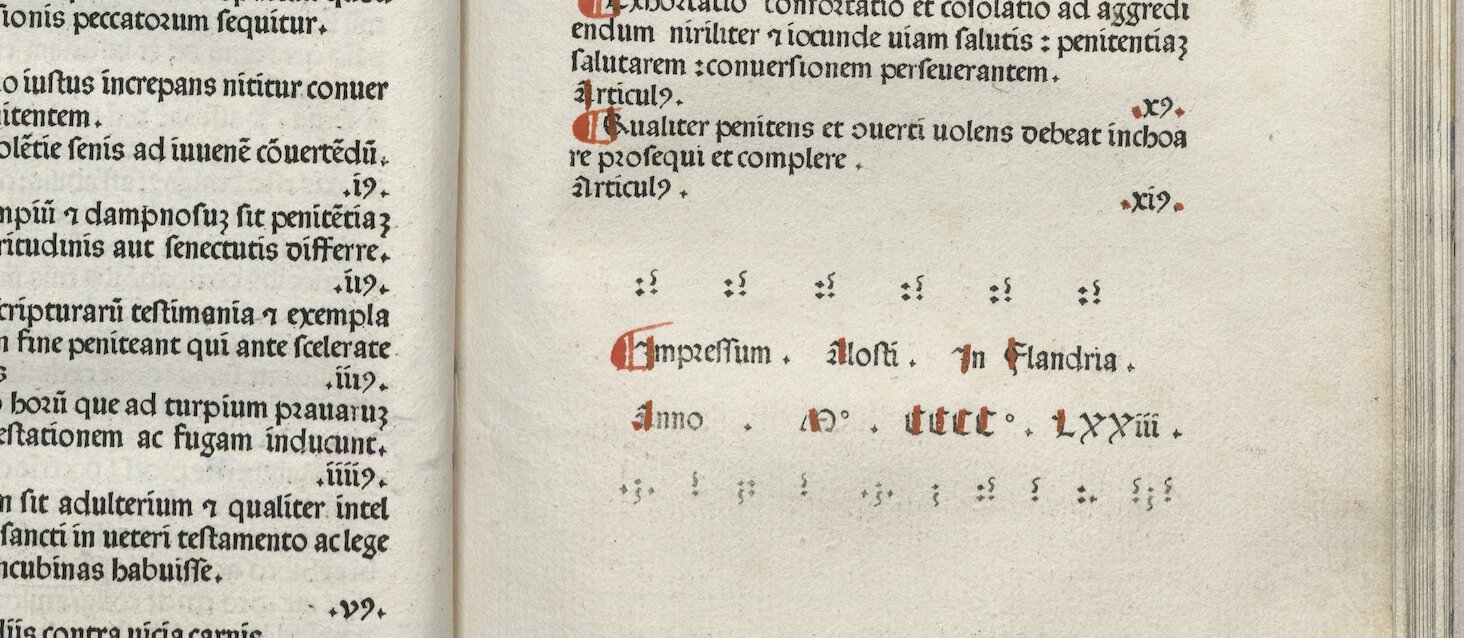 sionis peccatorum sequitur.
o iustus increpans nititur conuer
itentem.
olētie senis ad iuuenē cōuertēdū.
.iꝰ.
mpiū ⁊ dampnosuꝫ sit penitētiaꝫ
ritudinis aut senectutis differre.
.iiꝰ.
cripturarū testimania ⁊ exempla
n fine peniteant qui ante scelerate
.iiiꝰ.
horū que ad turpium prauaruꝫ
estationem ac fugam inducunt.
.iiiiꝰ.
m sit adulterium ⁊ qualiter intel
sancti in ueteri testamento ac lege
ncubinas habuisse.
.vꝰ.
diis contra uicia carnis
Exhortatio confortatio et cōsolatio ad aggredi
endum niriliter ⁊ iocunde uiam salutis : penitentiaꝫ
salutarem : conuersionem perseuerantem.
Articulꝰ. .xꝰ.
Qualiter penitens et ↄuerti uolens debeat inchoa
re prosequi et complere .
Articulꝰ . .xiꝰ.
Impressum . Alosti . In Flandria .
Anno . M° . CCCC° . LXXiii .